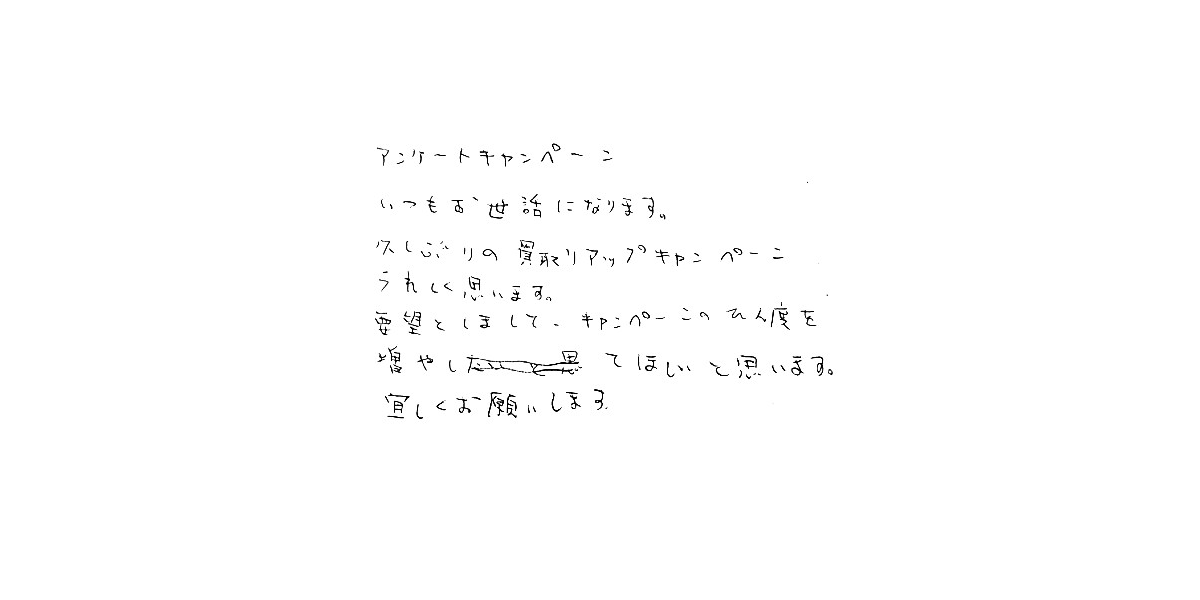 アンケートキャンペーン
いつもお世話になります。
久しぶりの買取りアップキャンペーン
うれしく思います。
要望としまして、キャンペーンのひん度を
増やしてほしいと思います。
宜しくお願いします